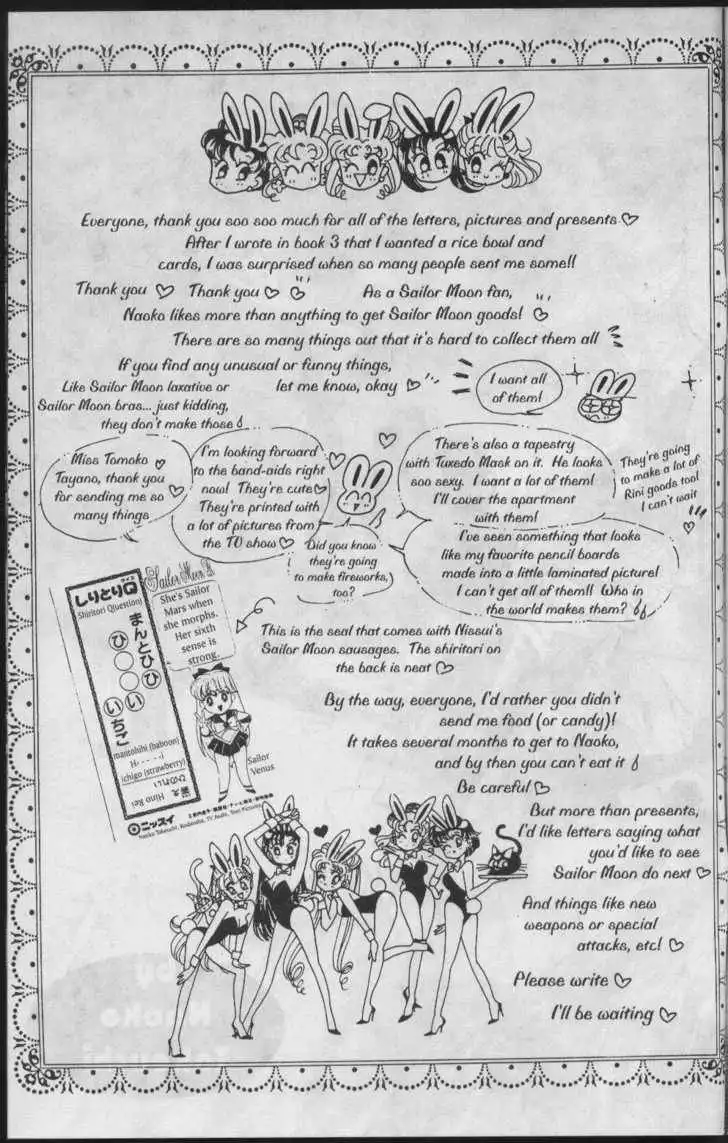 Everyone, thank you soo soo much for all of the letters, pictures and presents ♡
After I wrote in book 3 that I wanted a rice bowl and
cards, I was surprised when so many people sent me some!!
Thank you ♡ Thank you ♡ ♡
As a Sailor Moon fan,
Naoko likes more than anything to get Sailor Moon goods! ♡
There are so many things out that it's hard to collect them all
If you find any unusual or funny things,
let me know, okay ♡
Like Sailor Moon laxative or
Sailor Moon bras... just kidding,
they don't make those
I want all
of them!
Miss Tomoko ♡
Tayano, thank you
for sending me so ♡
many things
I'm looking forward
to the band-aids right
now! They're cute ♡
They're printed with
a lot of pictures from
the TV show ♡
Did you know
they're going
to make fireworks,
too?
There's also a tapestry
with Tuxedo Mask on it. He looks
soo sexy. I want a lot of them!
I'll cover the apartment
with them!
They're going
to make a lot of
Rini goods too!
I can't wait
I've seen something that looks
like my favorite pencil boards
made into a little laminated picture!
I can't get all of them!! Who in
the world makes them?
しりとりQ
クイズ
Shiritori Q(uestion)
まんとひひ
ひ○○い
いちご
mantohihi (baboon)
H- - - -i
ichigo (strawberry)
Hino Rei
ひのれい
Sailor Moon
She's Sailor
Mars when
she morphs.
Her sixth
sense is
strong.
Sailor
Venus
ニッスイ
Naoko Takeuchi, Kodansha, TV Asahi, Toei Pictures
This is the seal that comes with Nissui's
Sailor Moon sausages. The shiritori on
the back is neat ♡
By the way, everyone, I'd rather you didn't
send me food (or candy)!
It takes several months to get to Naoko,
and by then you can't eat it
Be careful ♡
But more than presents,
I'd like letters saying what
you'd like to see
Sailor Moon do next ♡
And things like new
weapons or special
attacks, etc! ♡
Please write ♡
I'll be waiting ♡